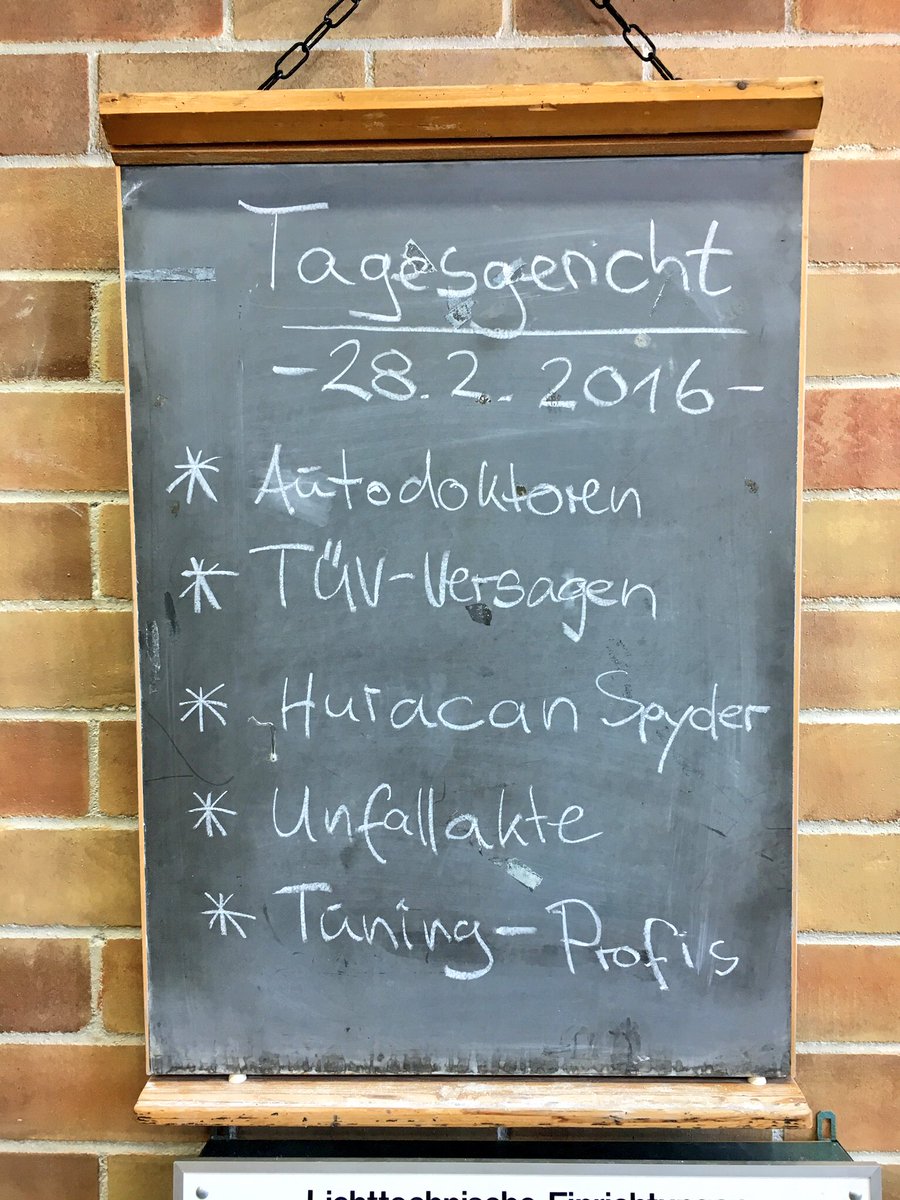 Tagesgericht
-28.2.2016-
* Autodoktoren
* TÜV-Versagen
* Huracan Spyder
* Unfallakte
* Tuning-Profis
Lichttechnische Einrichtungen